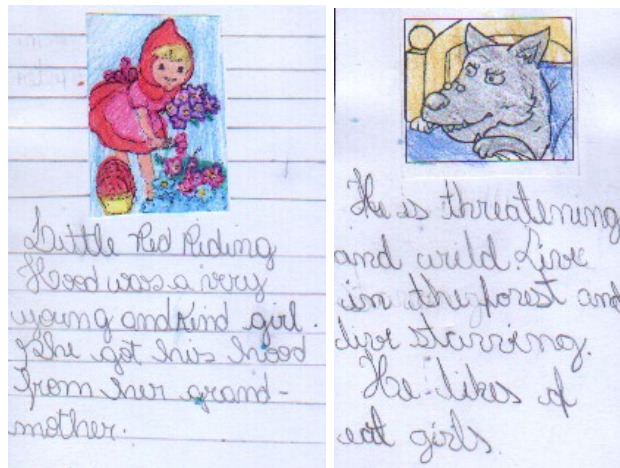 Little Red Riding
Hood was a very
young and kind girl.
She got his hood
from her grand-
mother.
He is threatening
and wild. Live
in the forest and
live starving.
He likes of
eat girls.